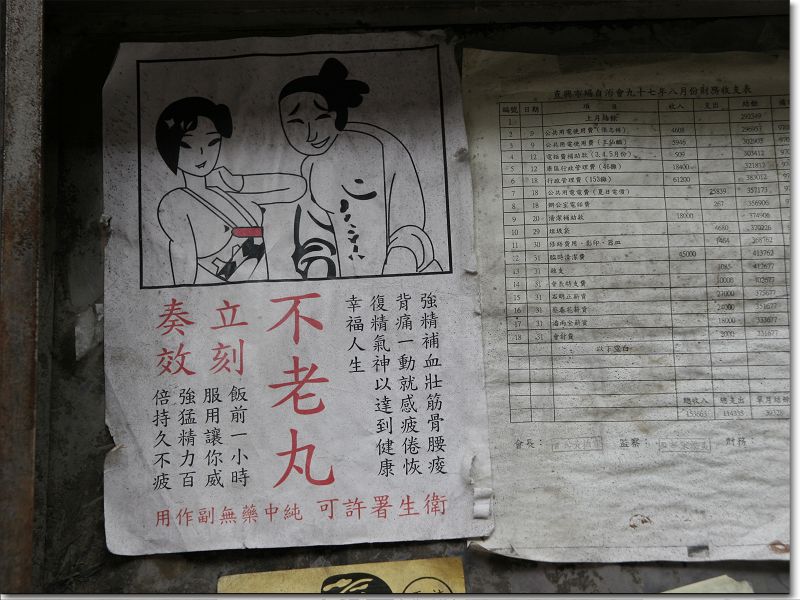 強精補血壯筋骨腰痠
背痛一動就感疲倦恢
復精氣神以達到健康
幸福人生
不老丸
立刻
奏效
飯前一小時
服用讓你威
強猛精力百
倍持久不疲
衛生署許可 純中藥無副作用
興市場自治會九十七年八月份財務收支表
編號 日期 項 目 收入 支出 結餘
1 上月結餘 292349
2 9 公共用電使用費 4608 296957
3 9 公共用電使用費 5946 302903
4 12 電話費補助款(3,4,5月份) 509 303412
5 12 攤區行政管理費(46攤) 18400 321812
6 18 行政管理費(153攤) 61200 383012
7 18 公共用電電費(夏日電價) 25839 357173
8 18 辦公室電話費 267 356906
9 20 清潔補助款 18000 374906
10 29 垃圾袋 4680 370226
11 30 368762
12 31 臨時清潔費 45000 413762
13 31 雜支 1085 412677
14 31 會長特支費 10000 402677
15 31 27000 375677
16 31 24000 351677
17 31 18000 333677
18 31 會計費 2000 331677
以下空白
總收入 總支出 單月結餘
153663 114335 39328
會長: 監察: 財務: